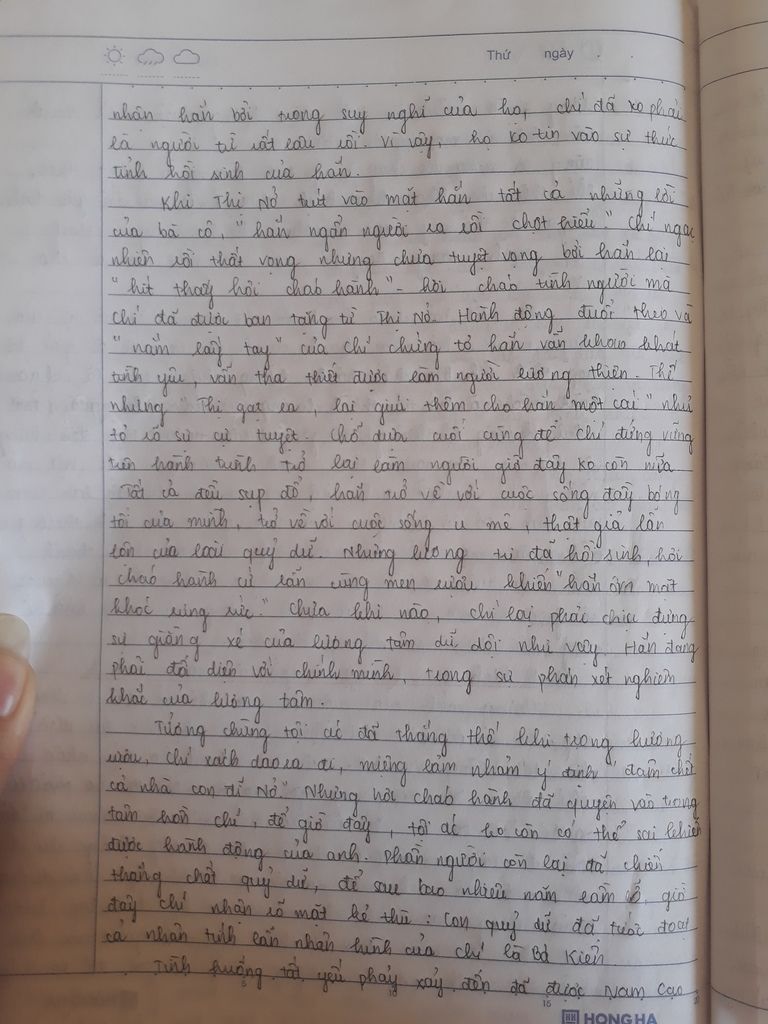 Thứ ngày
nhân hắn bởi trong suy nghĩ của họ, chí đã ko phải
là người từ rất lâu rồi. Vì vậy, họ ko tin vào sự thức
tỉnh hồi sinh của hắn.
Khi Thị Nở trút vào mặt hắn tất cả những lời
của bà cô, "hắn ngẩn người ra rồi chợt hiểu." Chí ngạc
nhiên rồi thất vọng nhưng chưa tuyệt vọng bởi hắn lại
"hít thấy hơi cháo hành" - hơi cháo tình người mà
Chí đã được ban tặng từ Thị Nở. Hành động đuổi theo và
"nắm lấy tay" của chí chứng tỏ hắn vẫn khao khát
tình yêu, vẫn tha thiết được làm người lương thiện. Thế
nhưng "Thị gạt ra, lại giúi thêm cho hắn một cái" như
tỏ rõ sự cự tuyệt. Chỗ dựa cuối cùng để chí đứng vững
trên hành trình trở lại làm người giờ đây ko còn nữa
Tất cả đều sụp đổ, hắn trở về với cuộc sống đầy bóng
tối của mình, trở về với cuộc sống u mê, thật giả lẫn
lộn của loài quỷ dữ. Nhưng lương tri đã hồi sinh, hơi
cháo hành cứ lẩn cùng men rượu khiến "hắn ôm mặt
khóc rưng rức." Chưa khi nào, chí lại phải chịu đựng
sự giằng xé của lương tâm dữ dội như vậy. Hắn đang
phải đối diện với chính mình, trong sự phán xét nghiêm
khắc của lương tâm.
Tưởng chừng tội ác đã thắng thế khi trong hương
rượu, chí xách dao ra đi, miệng lảm nhảm ý định "đâm chết
cả nhà con đĩ Nở." Nhưng hơi cháo hành đã quyện vào trong
tâm hồn chí, để giờ đây, tội ác ko còn có thể sai khiến
được hành động của anh. Phần người còn lại đã chiến
thắng chất quỷ dữ, để sau bao nhiêu năm giờ
đây chí nhận rõ mặt kẻ thù: Con quỷ dữ đã tước đoạt
cả nhân tính lẫn nhân hình của chí là Bá Kiến
Tình huống tất yếu phảy xảy đến đã được Nam Cao
5 10 15 20
HH HONG HA